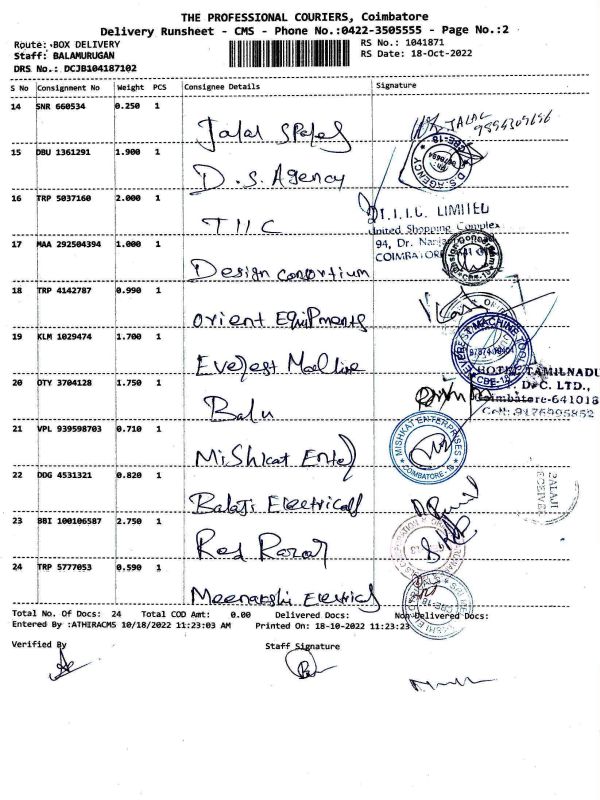 THE PROFESSIONAL COURIERS, Coimbatore
Delivery Runsheet - CMS - Phone No.:0422-3505555 - Page No.:2
Route: BOX DELIVERY RS No.: 1041871
Staff: BALAMURUGAN RS Date: 18-Oct-2022
DRS No.: DCJB104187102
S No Consignment No Weight PCS Consignee Details Signature
14 SNR 660534 0.250 1
Jalal JALAL
15 DBU 1361291 1.900 1
D.S. Agency D.S. AGENCY CBE-18
16 TRP 5037160 2.000 1
TIIC T.I.I.C. LIMITED
United Shopping Complex
94, Dr.
COIMBATORE
17 MAA 292504394 1.000 1
Design consortium
18 TRP 4142787 0.990 1
Orient Equipments
19 KLM 1029474 1.700 1
Everest EVEREST MACHINE TOOLS CBE-18
20 OTY 3704128 1.750 1 HOTEL TAMILNADU
T.T.D.C. LTD.,
Balu Coimbatore-641018
Cell: 9176995852
21 VPL 939598703 0.710 1
Mishkat Enter MISHKAT ENTERPRISES COIMBATORE - 18
22 DDG 4531321 0.820 1
Balaji Electricals BALAJI
23 BBI 100106587 2.750 1
Red
24 TRP 5777053 0.590 1
Meenakshi Electrical CBE-18
Total No. Of Docs: 24 Total COD Amt: 0.00 Delivered Docs: Non-Delivered Docs:
Entered By :ATHIRACMS 10/18/2022 11:23:03 AM Printed On: 18-10-2022 11:23:23
Verified By Staff Signature